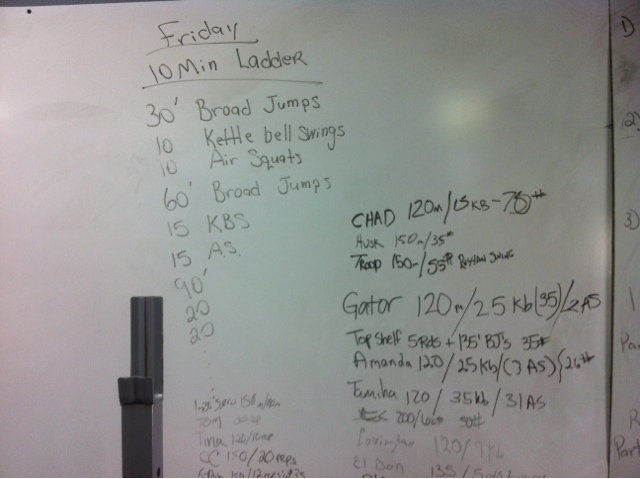 Friday
10 Min Ladder
30' Broad Jumps
10 Kettle bell Swings
10 Air Squats
60' Broad Jumps
15 KBS
15 A.S.
90'
20
20
CHAD 120m/15 KB - 70#
Husk 150m/35#
Troop 150m/55# Russian Swing
Gator 120m/25 Kb(35)/2 AS
Top Shelf 5 Rds + 135' BJ's 35#
Amanda 120/25kb/(3 AS)}26#
Tamiha 120/35kb/31AS
200/
Tom
Tina
CC 150/20 reps
Covington 120/
El Don 135/
D
2)
3)
1
Pa
R
Part